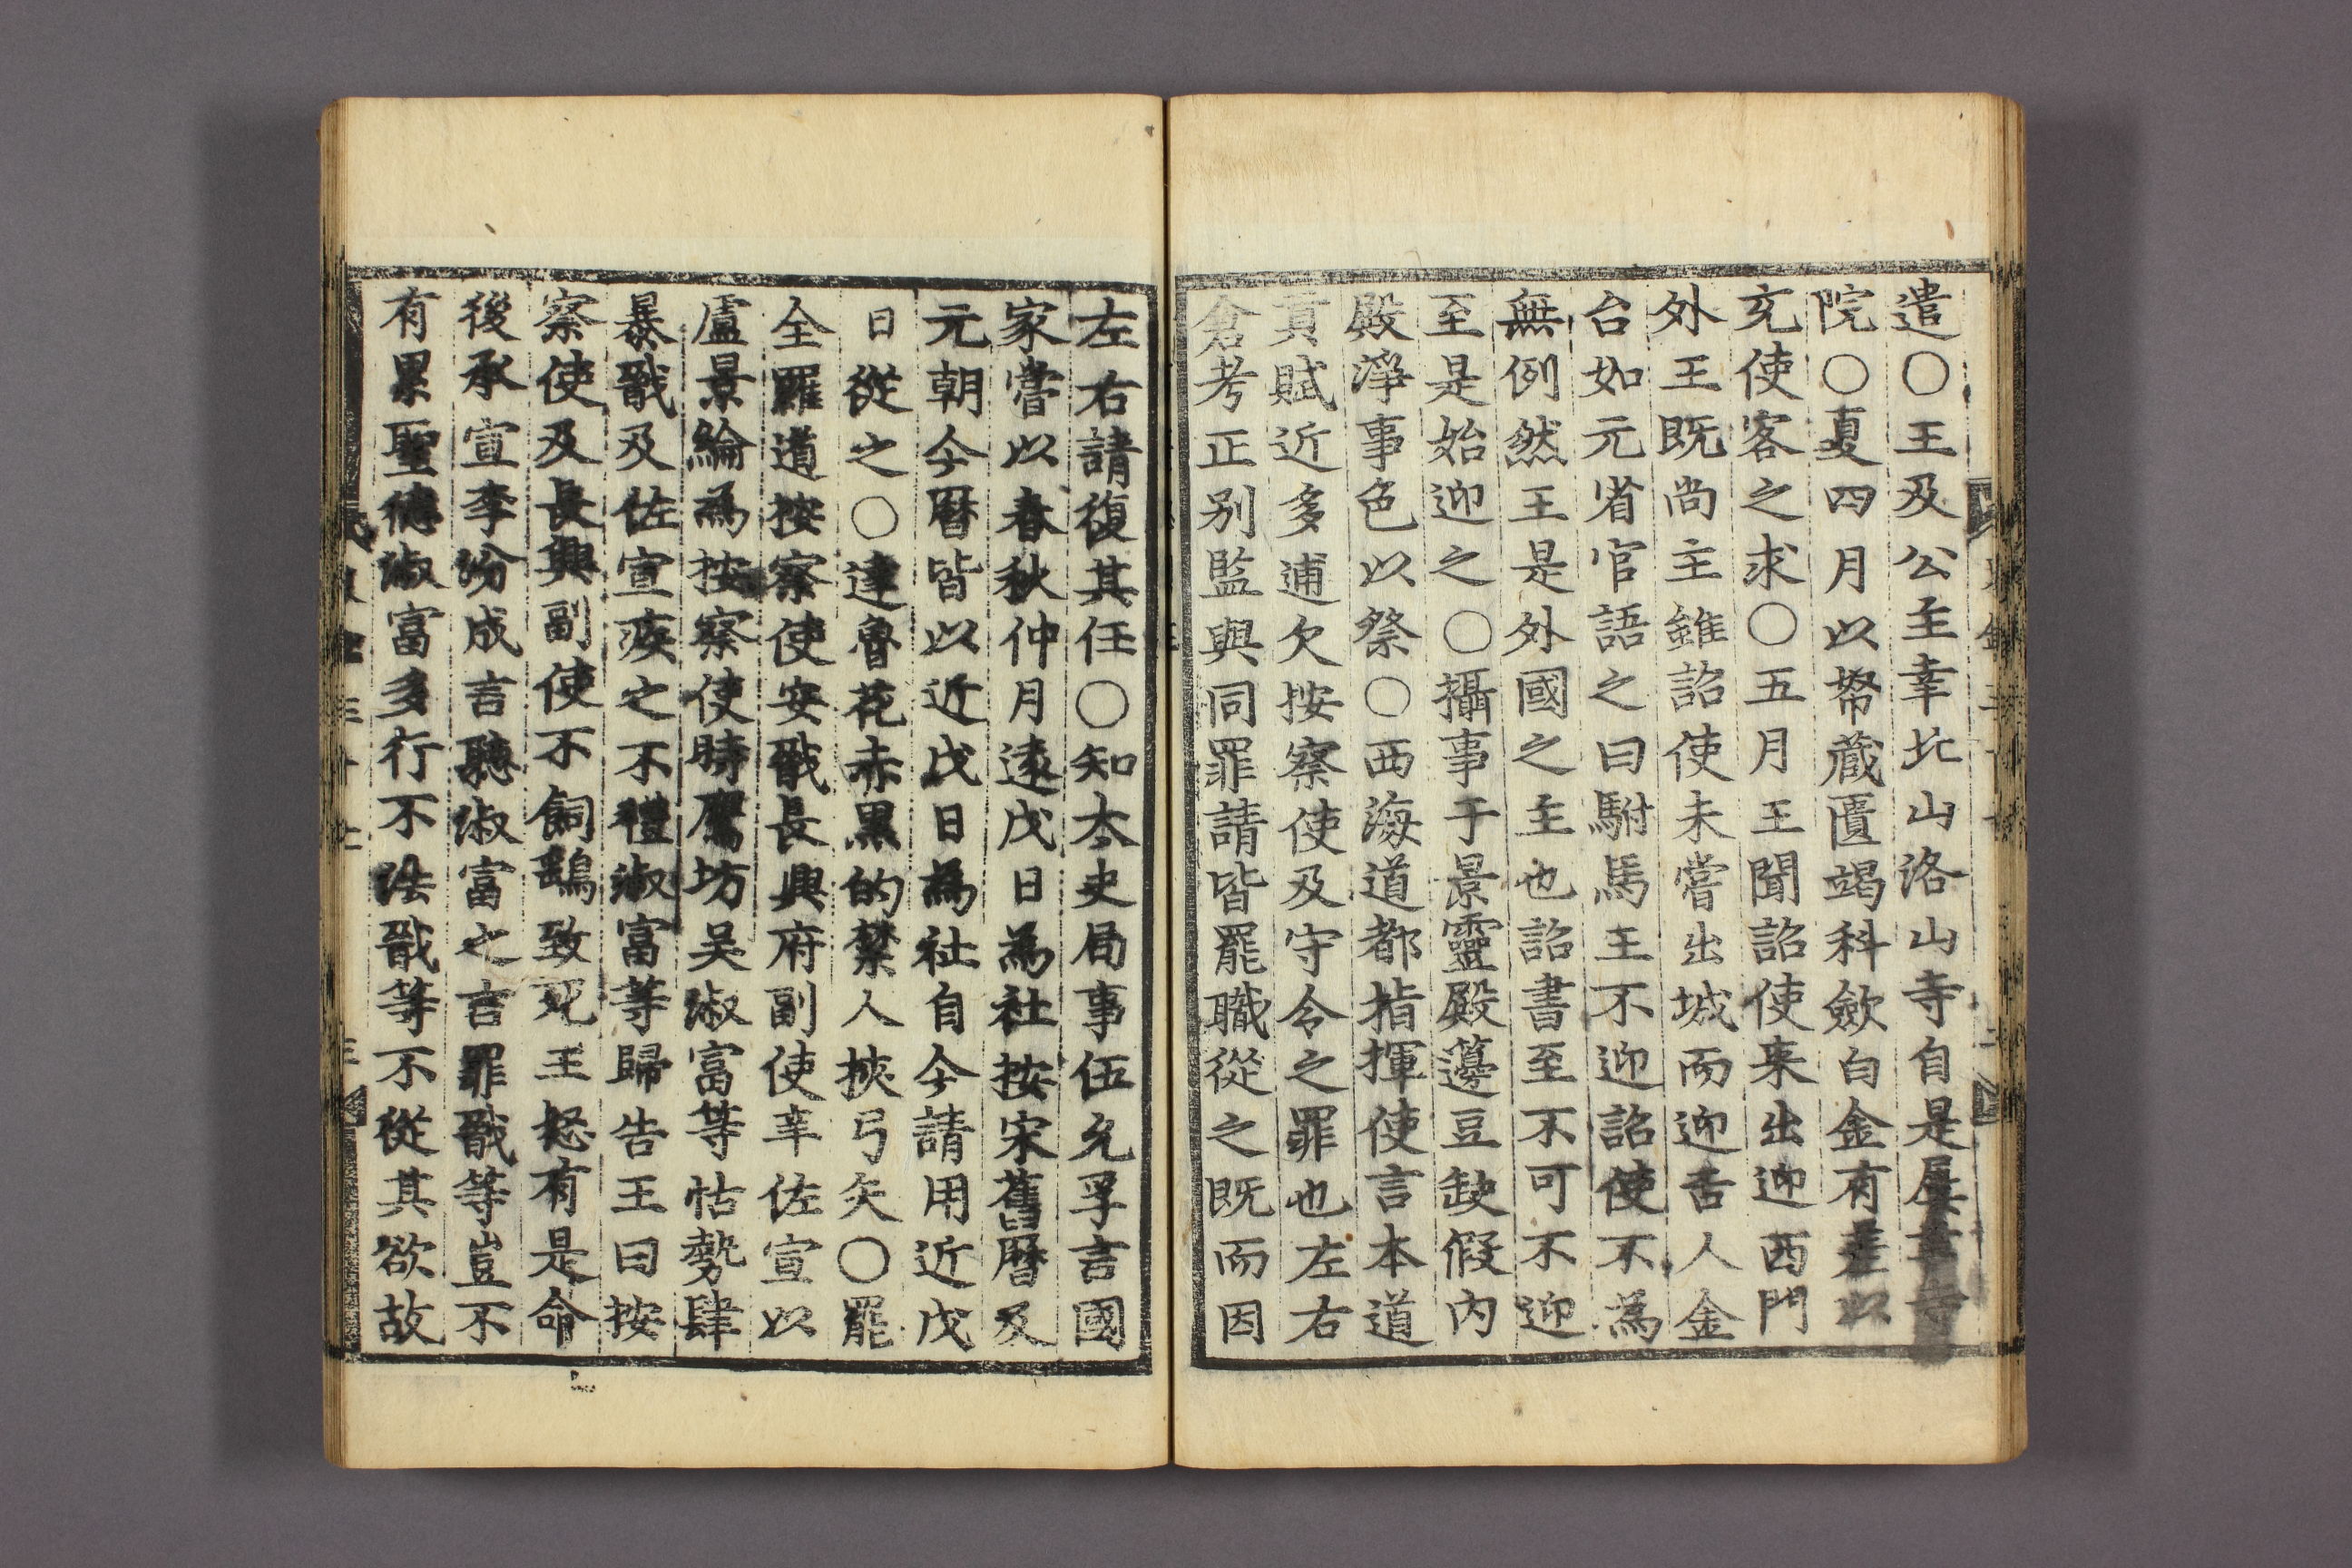 遣○王及公主幸北山洛山寺自是屢幸寺
院○夏四月以帑藏匱竭科歛白金有差以
充使客之求○五月王聞詔使来出迎西門
外王既尚主雖詔使未嘗出城而迎舌人金
台如元省官語之曰駙馬王不迎詔使不為
無例然王是外國之主也詔書至不可不迎
至是始迎之○攝事于景靈殿籩豆缺假内
殿淨事色以祭○西海道都指揮使言本道
貢賦近多逋欠按察使及守令之罪也左右
倉考正别監與同罪請皆罷職從之既而因
左右請復其任○知太史局事伍允孚言國
家嘗以春秋仲月遠戊日為社按宋舊曆及
元朝今曆皆以近戊日為社自今請用近戊
日從之○達魯花赤黑的禁人挾弓矢○罷
全羅道按察使安戩長興府副使辛佐宣以
盧景綸為按察使時鷹坊吴淑富等怙勢肆
暴戩及佐宣疾之不禮淑富等歸告王曰按
察使及長興副使不飼鷂致死王怒有是命
後承宣李汾成言聽淑富之言罪戩等豈不
有累聖德淑富多行不法戩等不從其欲故